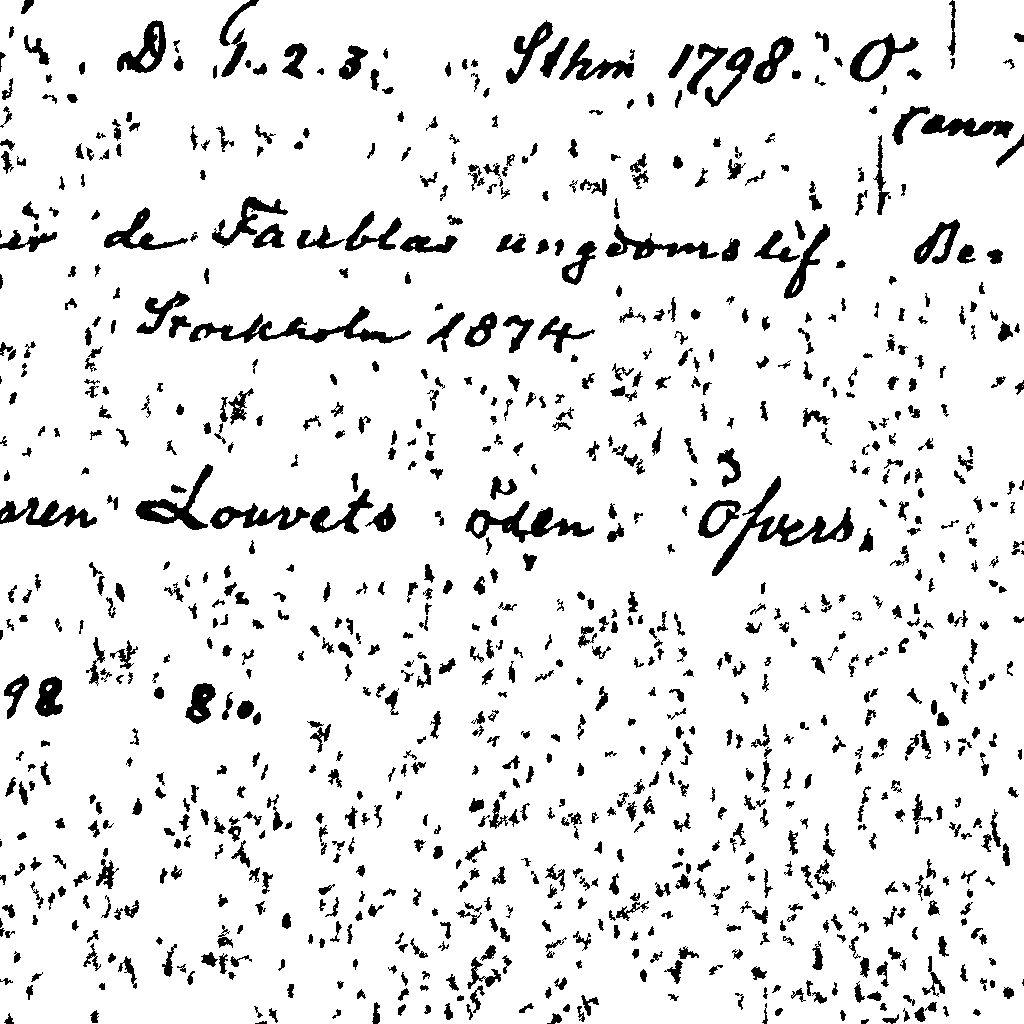 D. 1. 2. 3. Sthm 1798. O.
(anon)
de Faublas ungdomslif. Be-
Stockholm 1874
Louvets öden. Öfvers.
98 8:o.